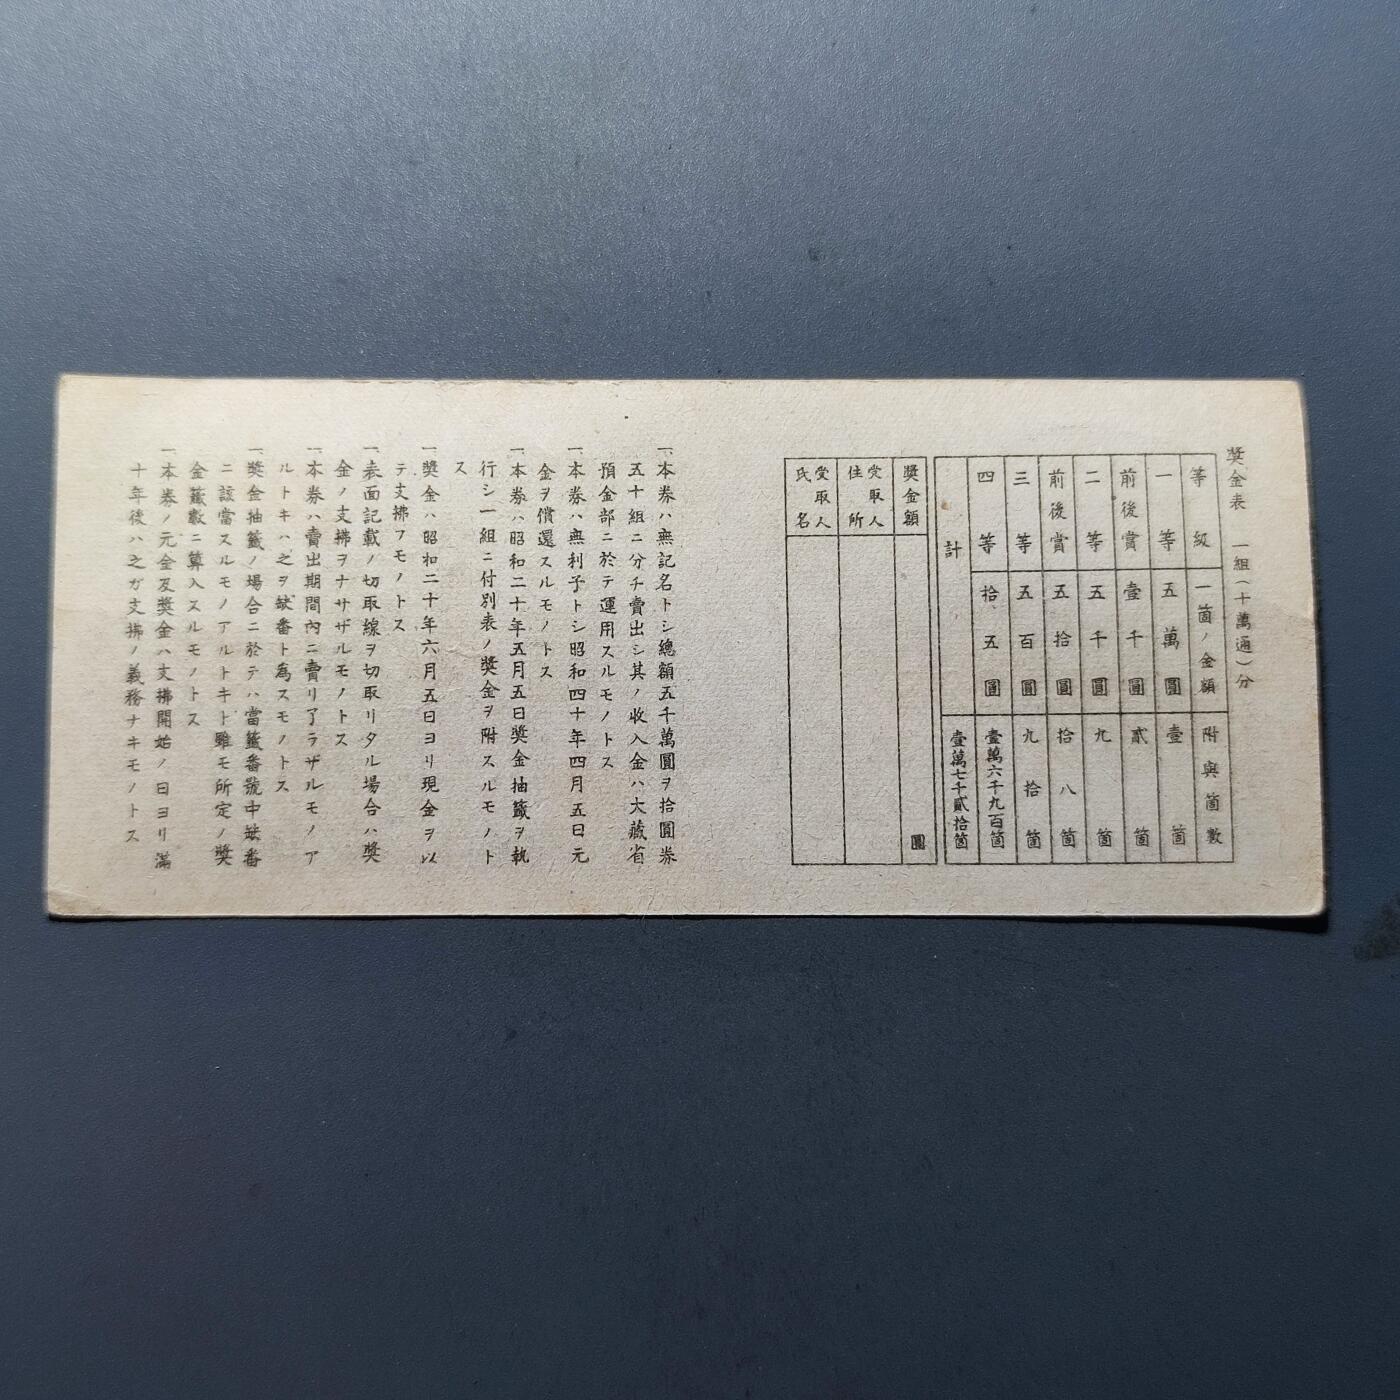 奬金表 一組(十萬通)分
等級 一箇ノ金額 附與箇數
一等 五萬圓 壹箇
前後賞 壹千圓 貳箇
二等 五千圓 九箇
前後賞 五拾圓 拾八箇
三等 五百圓 九拾箇
四等 拾五圓 壹萬六千九百箇
計 壹萬七千貳拾箇
奬金額 圓
受取人住所
受取人氏名
一、本券ハ無記名トシ總額五千萬圓ヲ拾圓券
五十組ニ分チ賣出シ其ノ收入金ハ大藏省
預金部ニ於テ運用スルモノトス
一、本券ハ無利子トシ昭和四十年四月五日元
金ヲ償還スルモノトス
一、本券ハ昭和二十年五月五日奬金抽籤ヲ執
行シ一組ニ付別表ノ奬金ヲ附スルモノト
ス
一、奬金ハ昭和二十年六月五日ヨリ現金ヲ以
テ支拂フモノトス
一、表面記載ノ切取線ヲ切取リタル場合ハ奬
金ノ支拂ヲナサザルモノトス
一、本券ハ賣出期間內ニ賣リ了ラザルモノア
ルトキハ之ヲ缺番ト為スモノトス
一、奬金抽籤ノ場合ニ於テハ當籤番號中缺番
ニ該當スルモノアルトキト雖モ所定ノ奬
金籤數ニ算入スルモノトス
一、本券ノ元金及奬金ハ支拂開始ノ日ヨリ滿
十年後ハ之ガ支拂ノ義務ナキモノトス